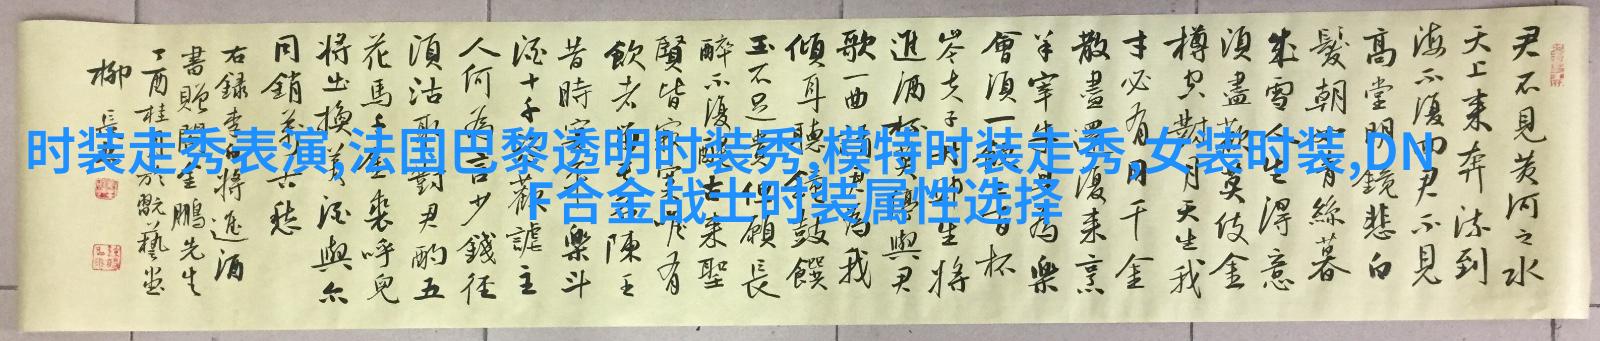 君不見黄河之水
天上来奔流到
海不復回君不見
高堂明鏡悲白
髮朝如青絲暮
成雪人生得意
須盡歡莫使金
樽空對月天生我
才必有用千金
散盡還復来烹
羊宰牛且為樂
會須一飲三百杯
岑夫子丹生將
進酒杯莫停與君
歌一曲請君為我
傾耳聽鐘鼓饌
玉不足貴但願長
醉不復醒古来聖
賢皆寂寞唯有
飲者留其名陳王
昔時宴平樂斗
酒十千恣歡謔主
人何為言少錢径
須沽取對君酌五
花馬千金裘呼兒
將出換美酒與尔
同銷萬古愁
右録李白將進酒
書贈金鵬先生
丁酉桂月於翫藝堂
柳
时装走秀表演,法国巴黎透明时装秀,模特时装走秀,女装时装,DN
F合金战士时装属性选择